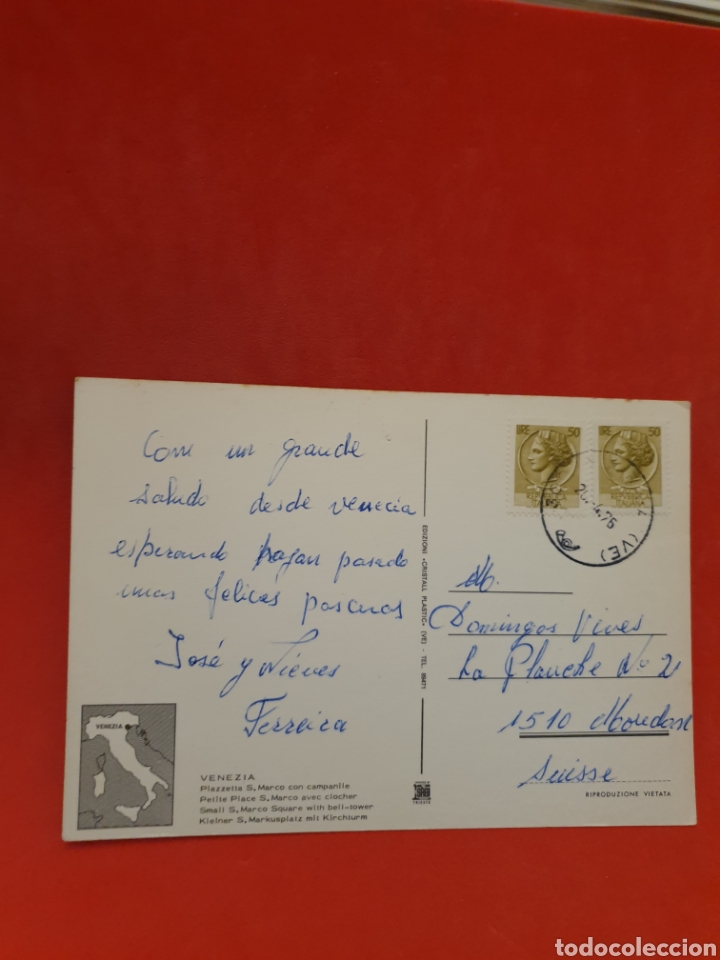 Com un grande
saludo desde venecia
esperando hagan pasado
unas felices pascuas
José y Nieves
Ferreira
VENEZIA
VENEZIA
Piazzetta S. Marco con campanile
Petite Place S. Marco avec clocher
Small S. Marco Square with bell-tower
Kleiner S. Markusplatz mit Kirchturm
EDIZIONI «CRISTALL PLASTIC» (VE) - TEL. 89471
TRIESTE
50
50
(VE)
M.
Domingos Vives
La Planche No 21
1510 Moudon
Suisse
RIPRODUZIONE VIETATA
todocoleccion